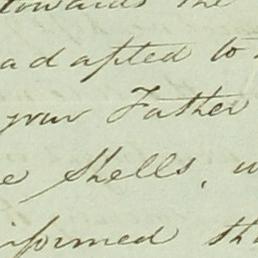 towards the
adapted to
your Father
e Shells, w
informed tha